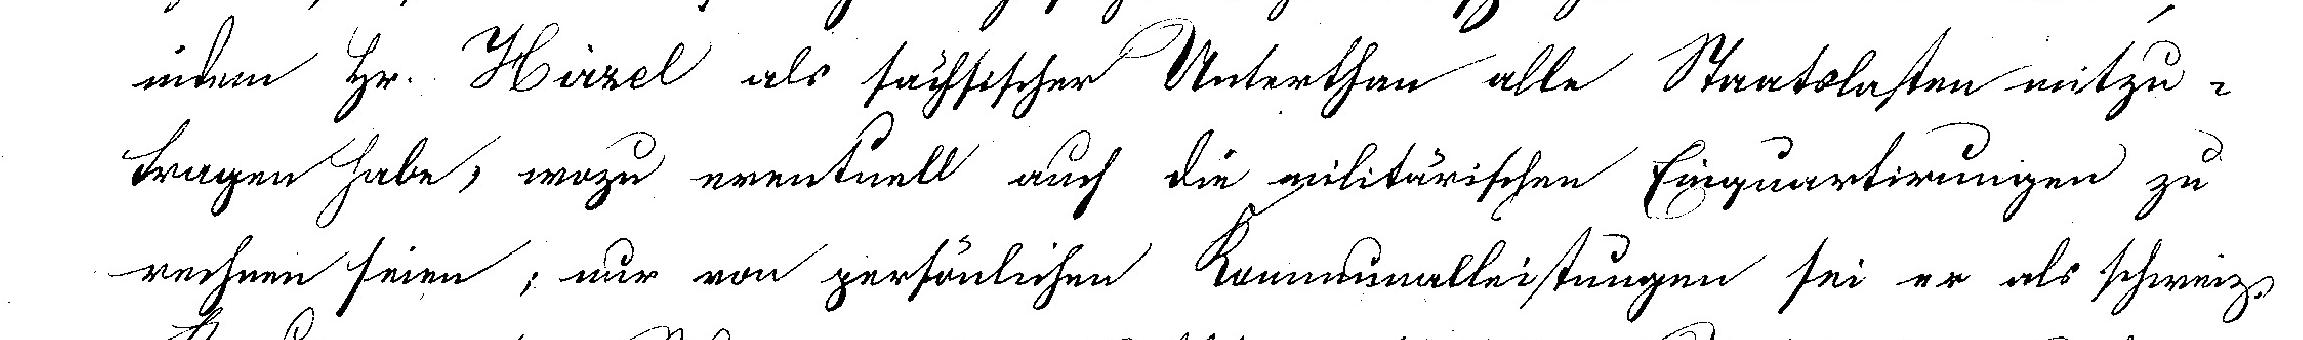 indem Hr. Hirzel als sächsischer Unterthan alle Staatslasten mitzu-
tragen habe, wozu eventuell auch die militärischen Einquartirungen zu
rechnen seien; nur von persönlichen Kommunalleistungen sei er als schweiz.